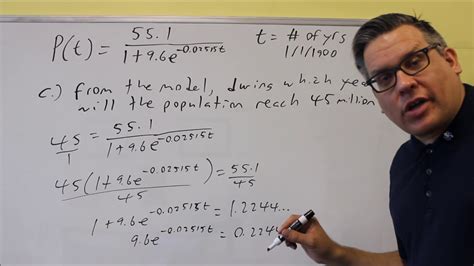 P(t) = 55.1 / 1 + 9.6e^-0.02515t
t = # of yrs
1/1/1900
c.) from the model, during which yea
will the population reach 45 million
45/1 = 55.1 / 1 + 9.6e^-0.02515t
45(1 + 9.6e^-0.02515t) / 45 = 55.1 / 45
1 + 9.6e^-0.02515t = 1.2244...
9.6e^-0.02515t = 0.224